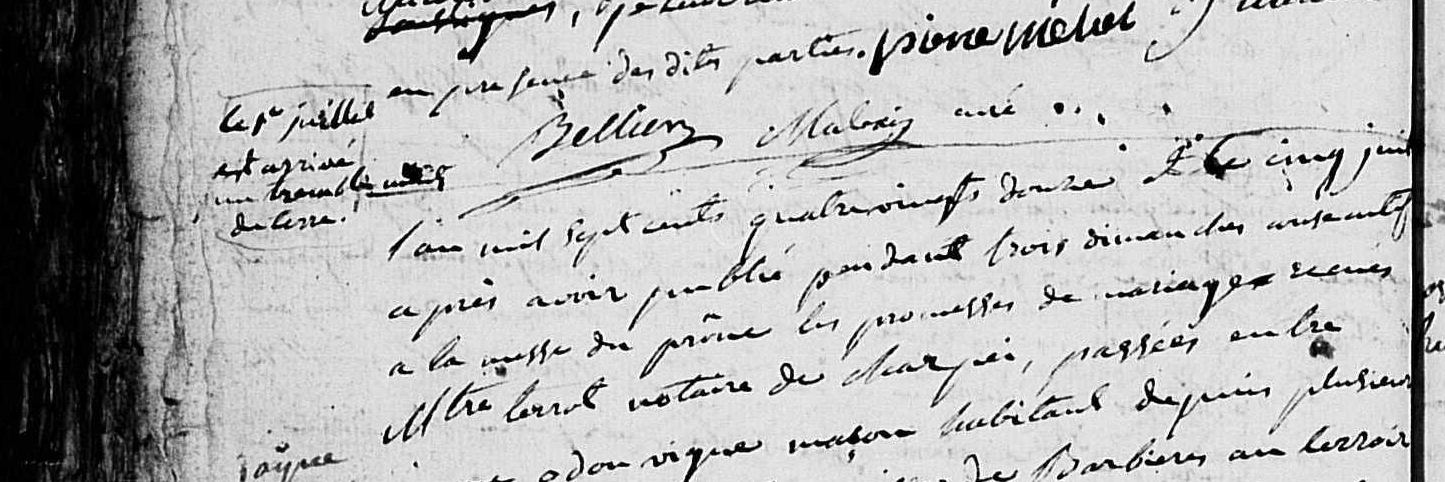 en presence des dits parties. pierre michel
le 1er juillet
est arrivé
un tremblement
de terre.
Bellier Malosse curé
l'an mil sept cents quatrevingts douze & le cinq juin
après avoir publié pendant trois dimanches
a la messe du prône les promesses de mariage recues
Mtre terrot notaire de charpei, passées entre
odon vigne maçon habitant depuis plusieurs
jayne
de Barbieres au terroir